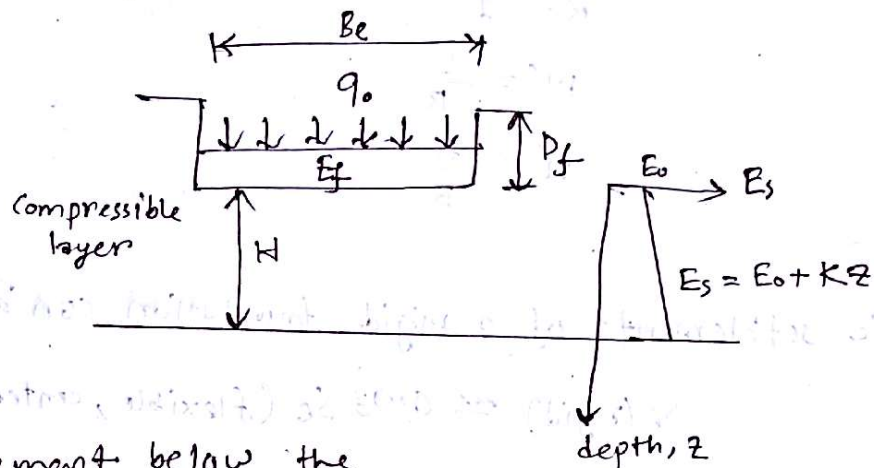 Be
q₀
Ef
Df
Compressible
layer
H
E₀
Es
Es = E₀ + KZ
depth, z
ement below the